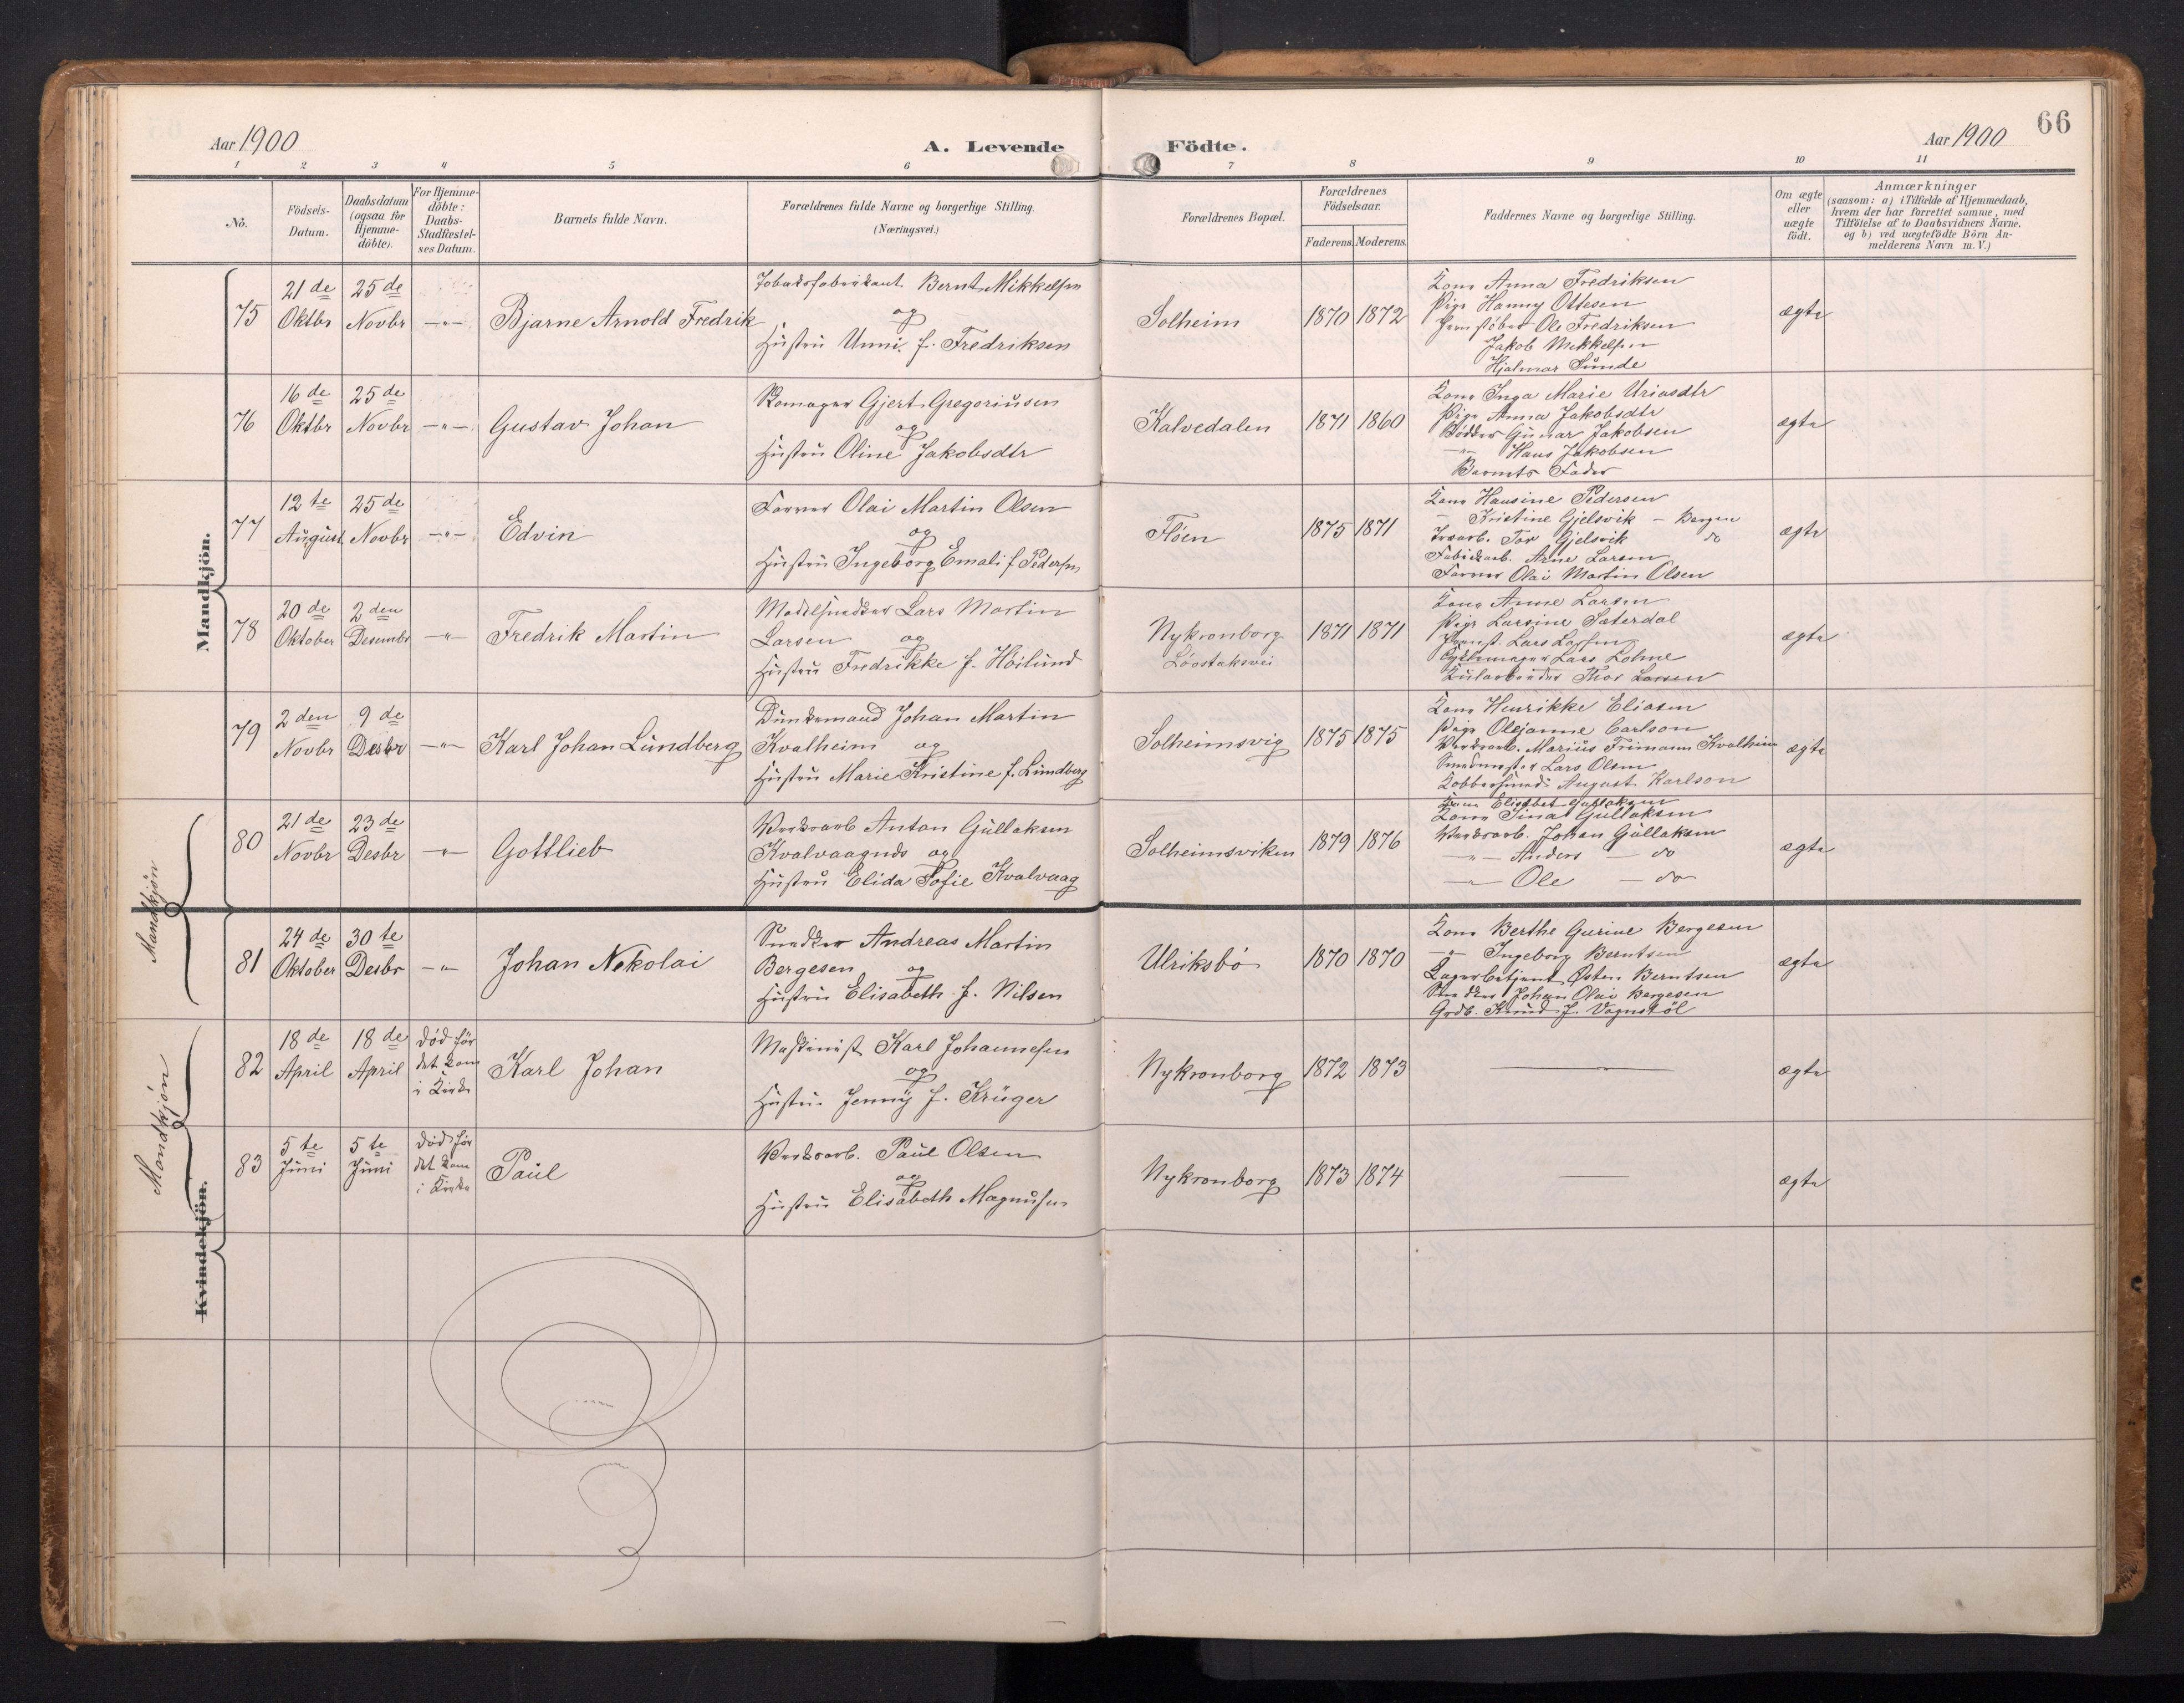 66
Aar 1900
A. Levende Födte.
Aar 1900
1 2 3 4 5 6 7 8 9 10 11
No.
Födsels-
Datum.
Daabsdatum
(ogsaa for
Hjemme-
döbte).
For Hjemme-
döbte:
Daabs-
Stadfæstel-
ses Datum.
Barnets fulde Navn.
Forældrenes fulde Navne og borgerlige Stilling.
(Næringsvei.)
Forældrenes Bopæl.
Forældrenes
Födselsaar.
Faderens. Moderens.
Faddernes Navne og borgerlige Stilling.
Om ægte
eller
uægte
födt.
Anmærkninger
(saasom: a) i Tilfælde af Hjemmedaab,
hvem der har forrettet samme, med
Tilföielse af to Daabsvidners Navne,
og b) ved uægtefödte Börn An-
melderens Navn m. V.)
Mandkjön.
75
21 de
Oktbr
25 de
Novbr
-"-
Bjarne Arnold Fredrik
Tobaksfabrikant Bernt Mikkelsen
og
Hustru Unni f. Fredriksen
Solheim
1870 1872
Kone Anna Fredriksen
Pige Hanny Ottesen
Jernstöber Ole Fredriksen
Jakob Mikkelsen
Hjalmar Sunde
ægte
76
16 de
Oktbr
25 de
Novbr
-"-
Gustav Johan
Skomager Gjert Gregoriusen
og
Hustru Oline Jakobsdtr
Kalvedalen
1871 1860
Kone Inga Marie Uriasdtr
Pige Anna Jakobsdtr
Bödker Gunnar Jakobsen
-"- Hans Jakobsen
Barnets Fader
ægte
77
12 te
August
25 de
Novbr
-"-
Edvin
Farver Olai Martin Olsen
og
Hustru Ingeborg Emali f. Pedersen
Flöen
1875 1871
Kone Hansine Pedersen
- Kristine Gjelsvik - Bergen
Tor Gjelsvik do
Fabrikarb. Arne Larsen
Farver Olai Martin Olsen
ægte
78
20 de
Oktober
2 den
Desembr
-"-
Fredrik Martin
Modelsnedker Lars Martin
Larsen og
Hustru Fredrikke f. Höilund
Nykronborg
Löostaksvei
1871 1871
Kone Anne Larsen
Pige Larsine Sæterdal
Lars Larsen
Lars Lohne
Thor Larsen
ægte
79
2 den
Novbr
9 de
Desbr
-"-
Karl Johan Lundberg
Dünkemand Johan Martin
Kvalheim og
Hustru Marie Kristine f. Lundberg
Solheimsvig
1875 1875
Kone Henrikke Eliasen
Pige Olejanne Carlson
Værksarb. Marius Frimann Kvalheim
Smedmester Lars Olsen
Kobbersmed August Karlson
ægte
80
21 de
Novbr
23 de
Desbr
-"-
Gottlieb
Værksarb Anton Gullaksen
Kvalvaagnds og
Hustru Elida Sofie Kvalvaag
Solheimsviken
1879 1876
Kone Elisabet Gullaksen
Kone Sina Gullaksen
Værksarb. Johan Gullaksen
-"- Anders - do
-"- Ole - do
ægte
Mandkjön
81
24 de
Oktober
30 te
Desbr
-"-
Johan Nikolai
Snedker Andreas Martin
Bergesen og
Hustru Elisabeth f. Nilsen
Ulriksbö
1870 1870
Kone Berthe Gurine Bergesen
-"- Ingeborg Berntsen
Lagerbetjent Østen Berntsen
Snedker Johan Olai Bergesen
Grdb. Knud J. Vognstöl
ægte
Mandkjön
82
18 de
April
18 de
April
död för
det kom
i Kirke
Karl Johan
Maskinist Karl Johannesen
og
Hustru Jenny f. Krüger
Nykronborg
1872 1873
ægte
83
5 te
Juni
5 te
Juni
död för
det kom
i Kirke
Paul
Værksarb. Paul Olsen
og
Hustru Elisabeth Magnusen
Nykronborg
1873 1874
ægte
Kvindekjön.